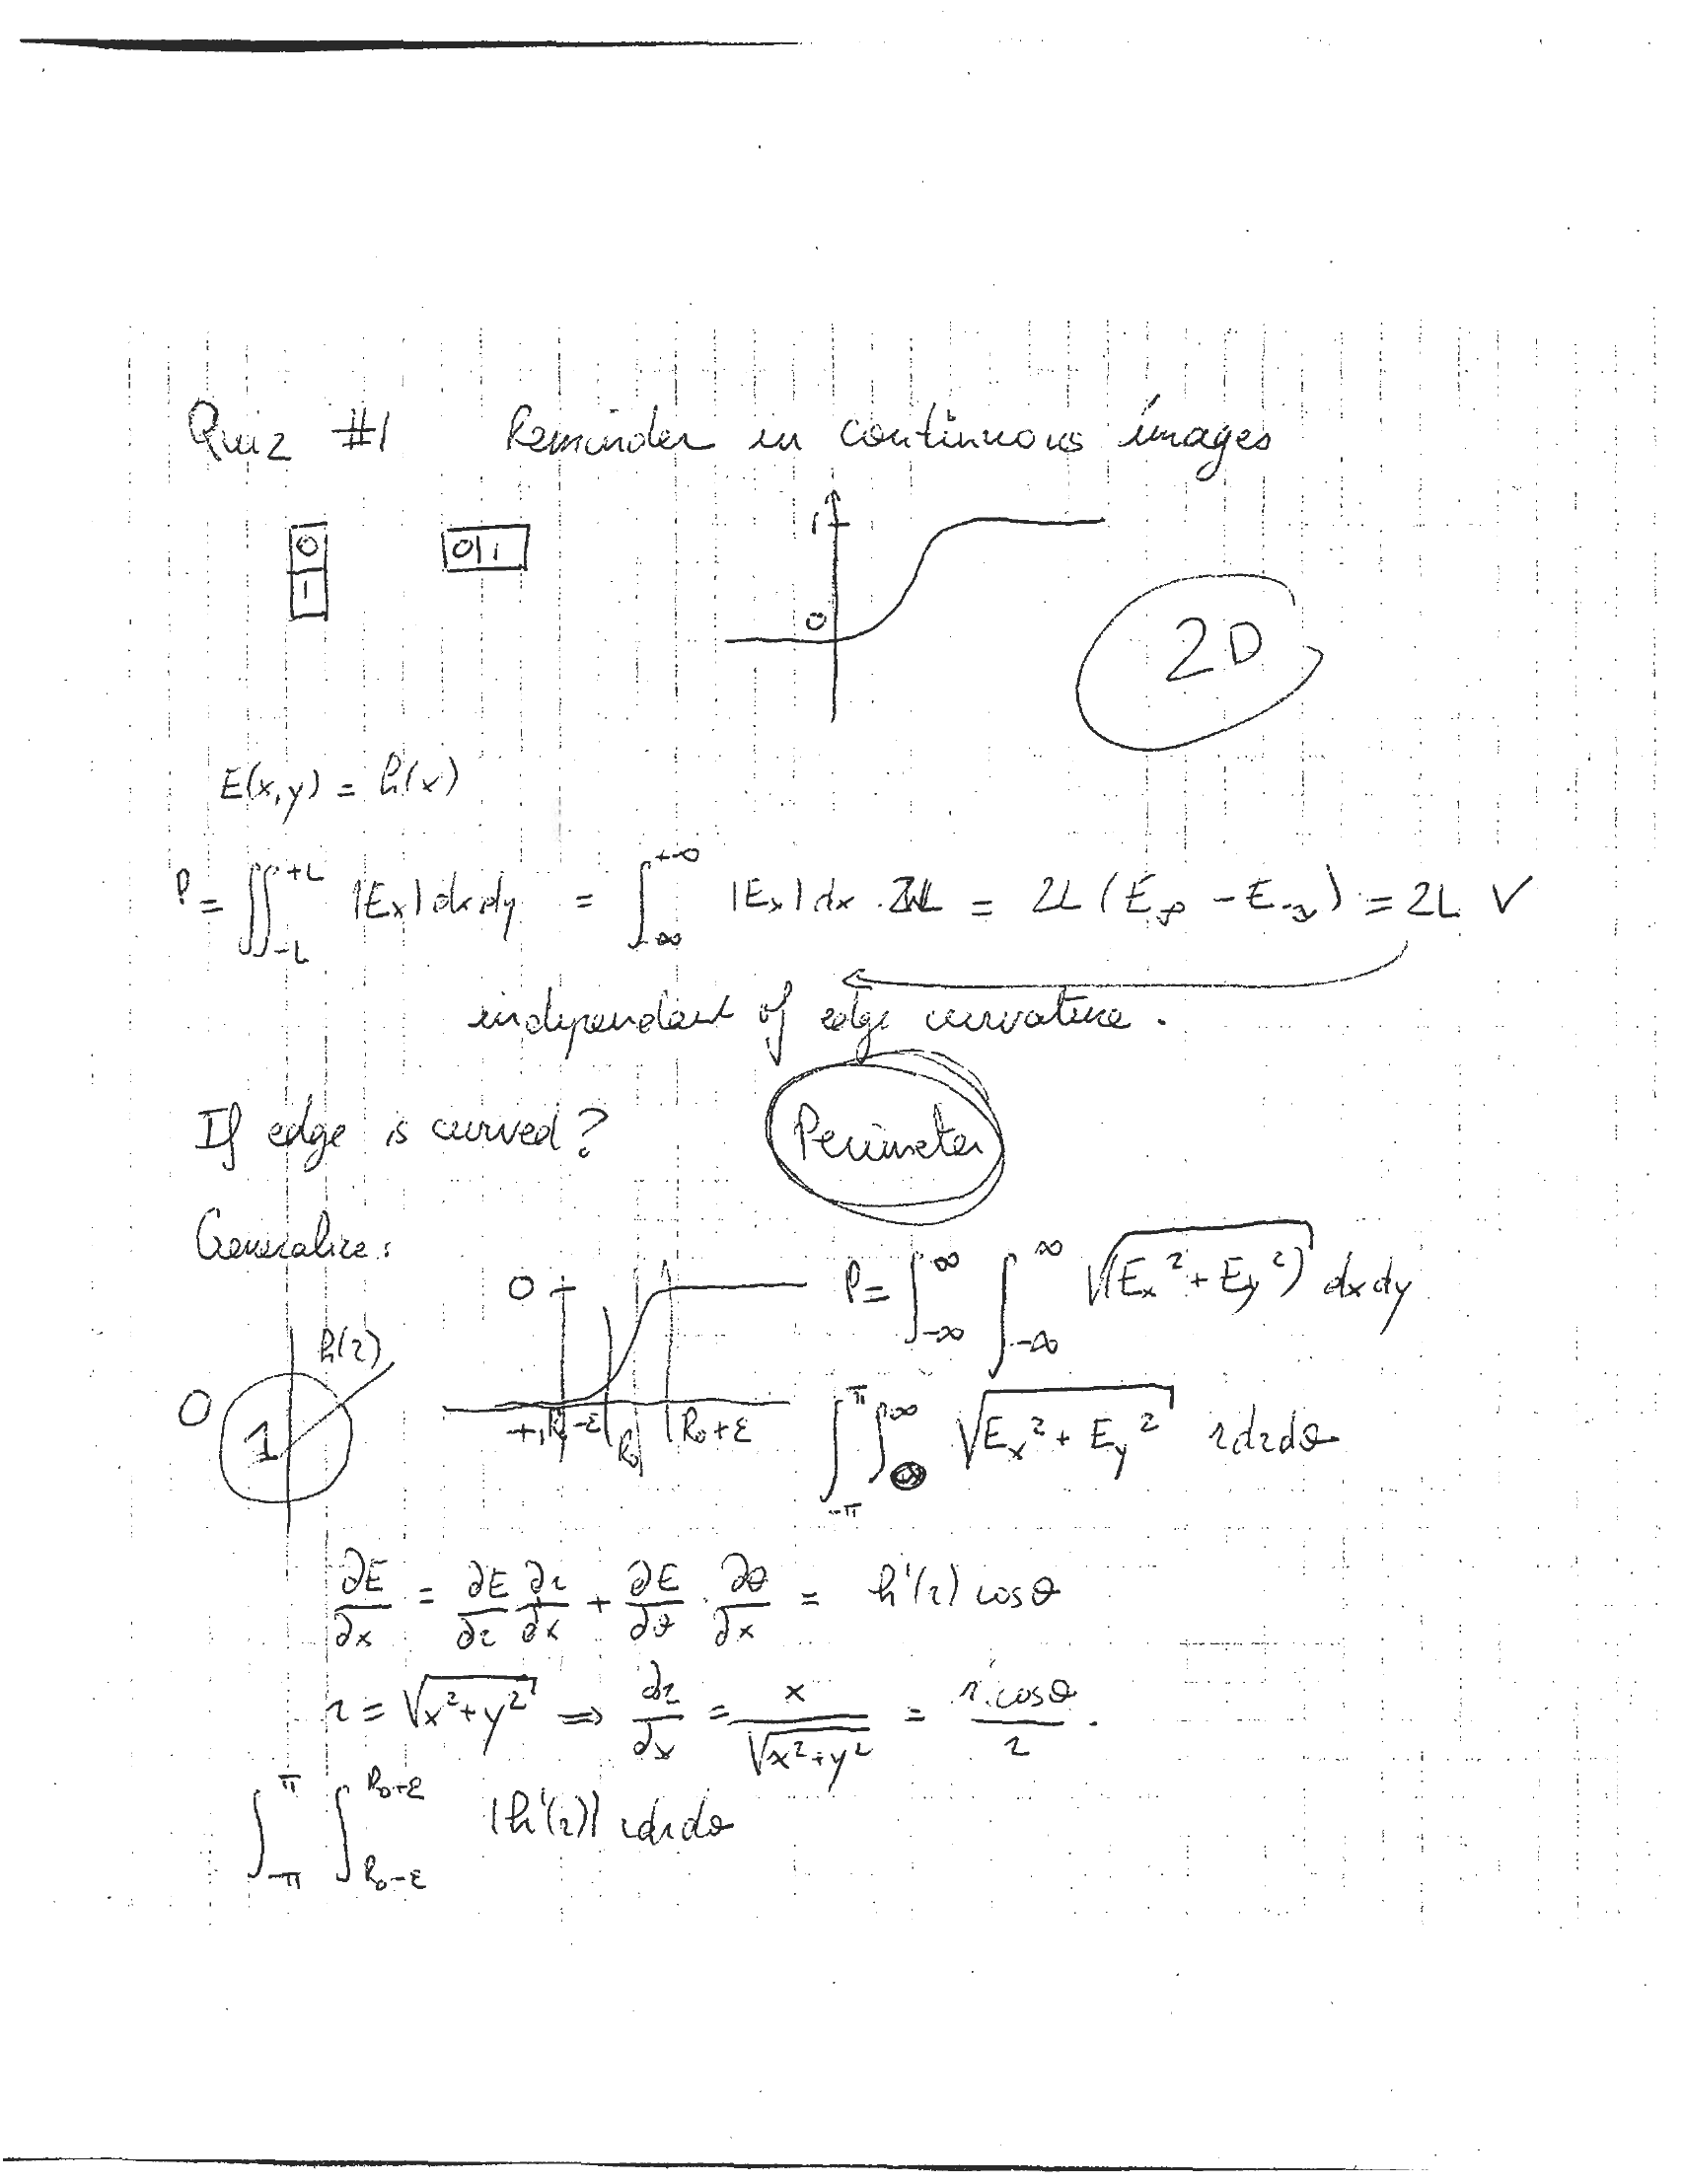 Quiz #1 Reminder in continuous images
0 1
0 1
1
0
2D
E(x,y) = h(x)
P = ∬_{-L}^{+L} |E_x| dx dy = ∫_{-∞}^{+∞} |E_x| dx . 2L = 2L (E_∞ - E_{-∞}) = 2L ✓
independant of edge curvature.
If edge is curved? Perimeter
Generalize:
P = ∫_{-∞}^{∞} ∫_{-∞}^{∞} √(E_x² + E_y²) dx dy
0
h(r)
0
1
+1 R₀-ε R₀ R₀+ε
∫_{-π}^{π} ∫_{0}^{∞} √(E_x² + E_y²) r dr dθ
∂E/∂x = ∂E/∂r ∂r/∂x + ∂E/∂θ . ∂θ/∂x = h'(r) cos θ
r = √(x² + y²) ⇒ ∂r/∂x = x/√(x² + y²) = r.cos θ/r .
∫_{-π}^{π} ∫_{R₀-ε}^{R₀+ε} |h'(r)| r dr dθ